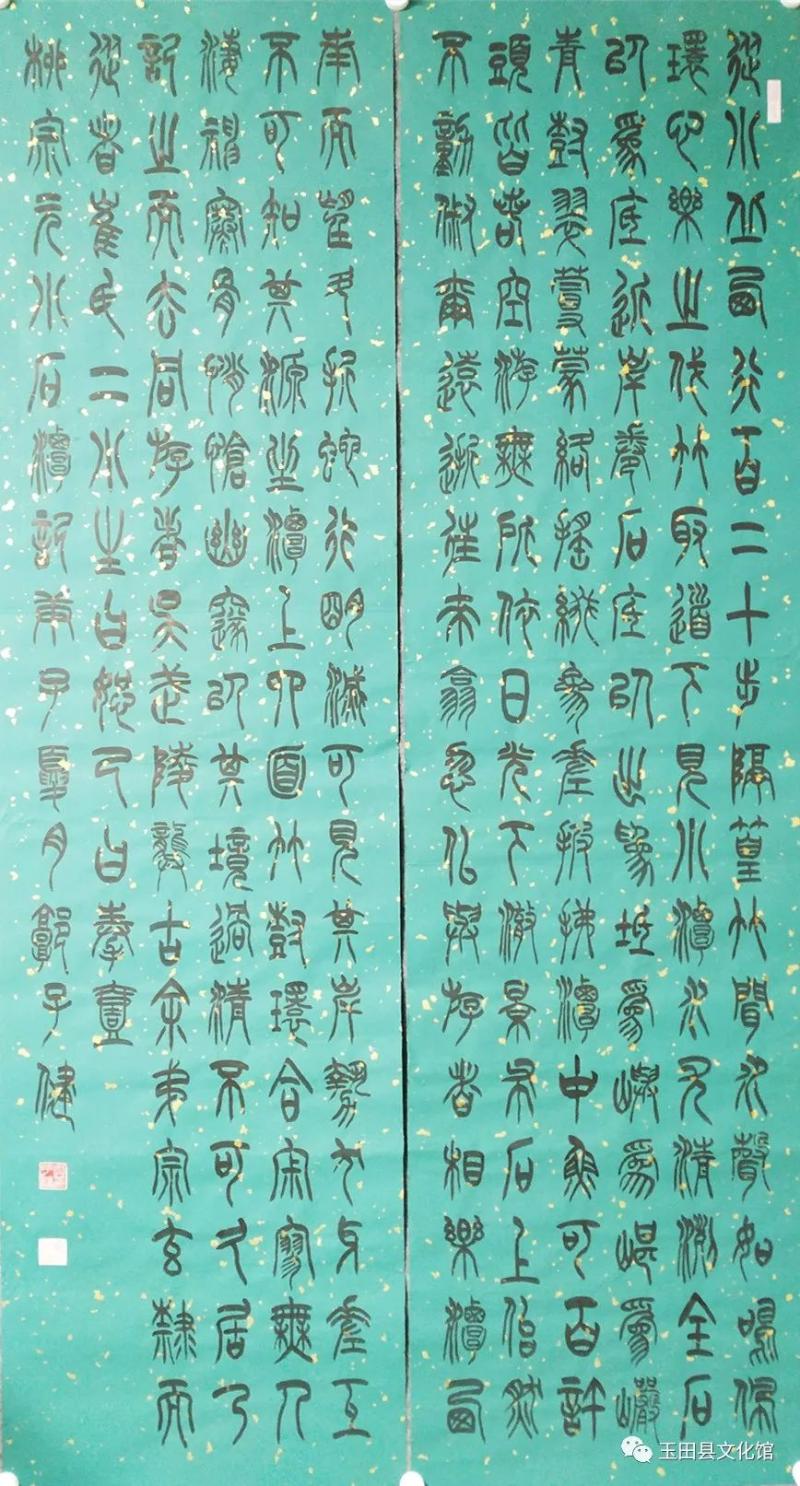 從小丘西行百二十步隔篁竹聞水聲如鳴佩
環心樂之伐竹取道下見小潭水尤清洌全石
以為底近岸卷石底以出為坻為嶼為嵁為巖
青樹翠蔓蒙絡搖綴參差披拂潭中魚可百許
頭皆若空游無所依日光下澈景布石上佁然
不動俶爾遠逝往來翕忽似與游者相樂潭西
南而望斗折蛇行明滅可見其岸勢犬牙差互
不可知其源坐潭上四面竹樹環合寂寥無人
淒神寒骨悄愴幽邃以其境過清不可久居乃
記之而去同游者吳武陵龔古余弟宗玄隸而
從者崔氏二小生曰恕己曰奉壹
柳宗元小石潭記庚子夏月子健
玉田县文化馆